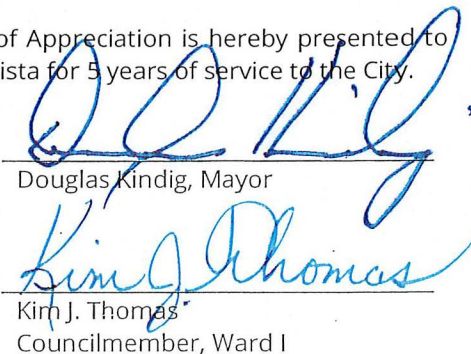 of Appreciation is hereby presented to
ista for 5 years of service to the City.
Douglas Kindig, Mayor
Kim J. Thomas
Kim J. Thomas
Councilmember, Ward I